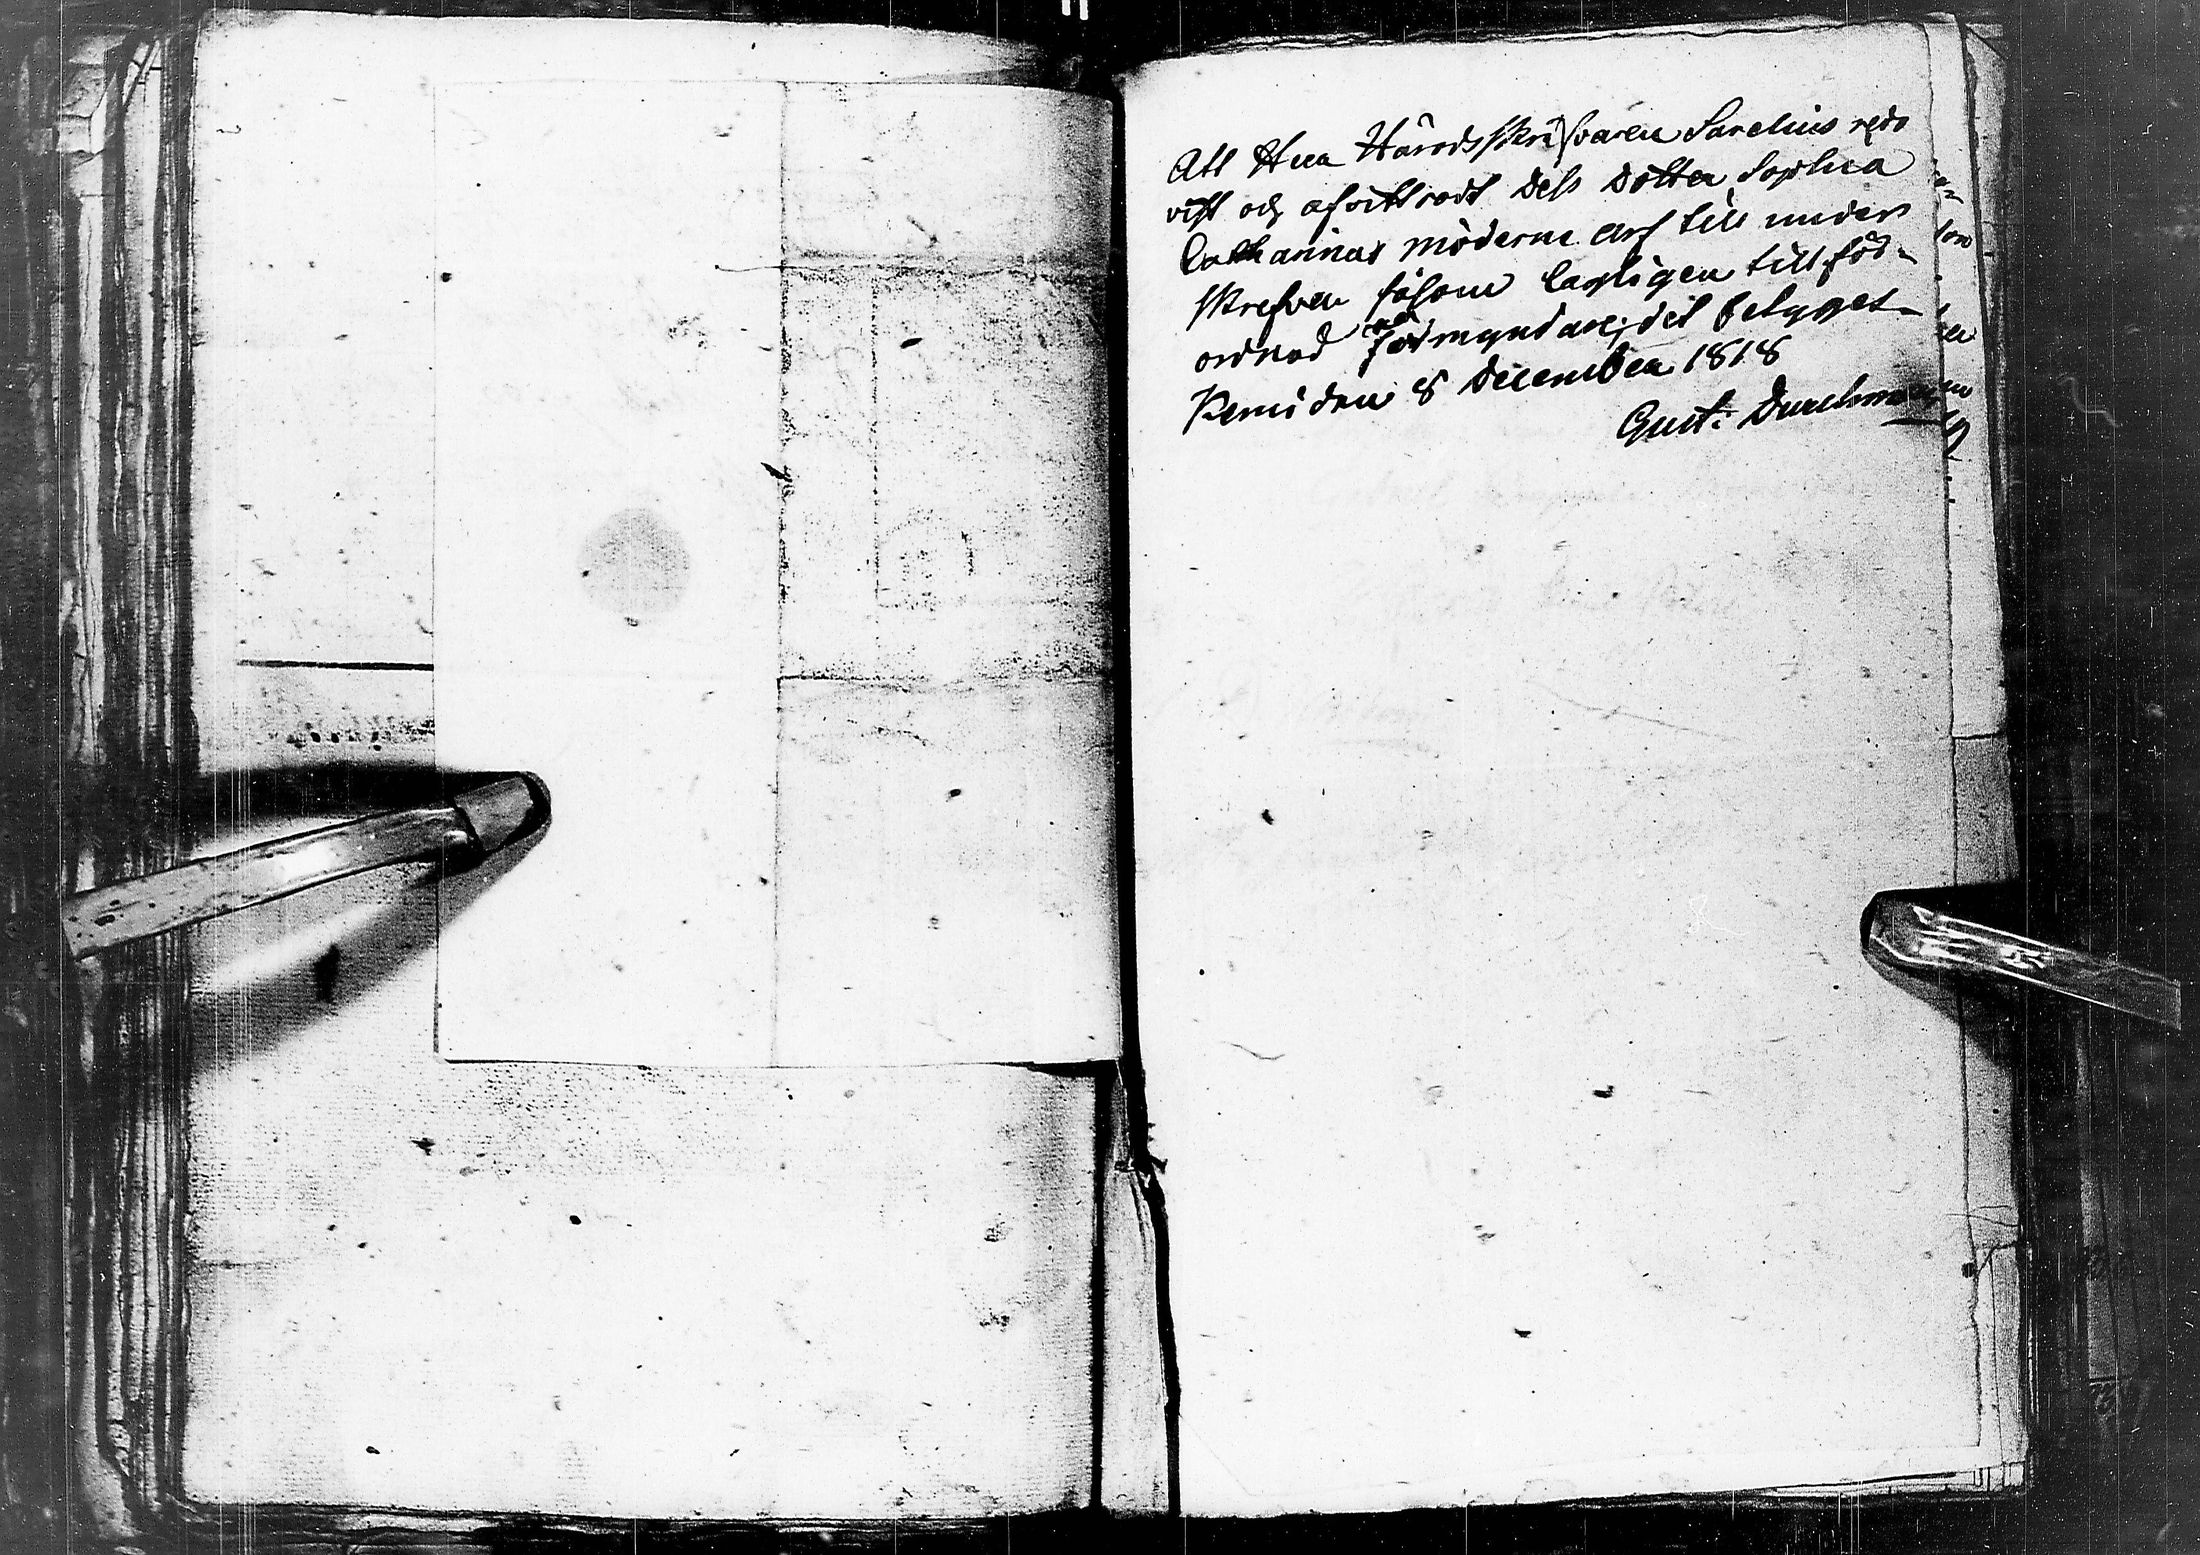 Att Herr Häradsskrifvaren Sarelius redo
vist och afvittrat dess dotter Sophia
Catharinas möderne arf till under
skrefven såsom lagligen tillför-
ordnad förmyndare; det betygges.
Kemi den 8 December 1818
Gust: Durchman